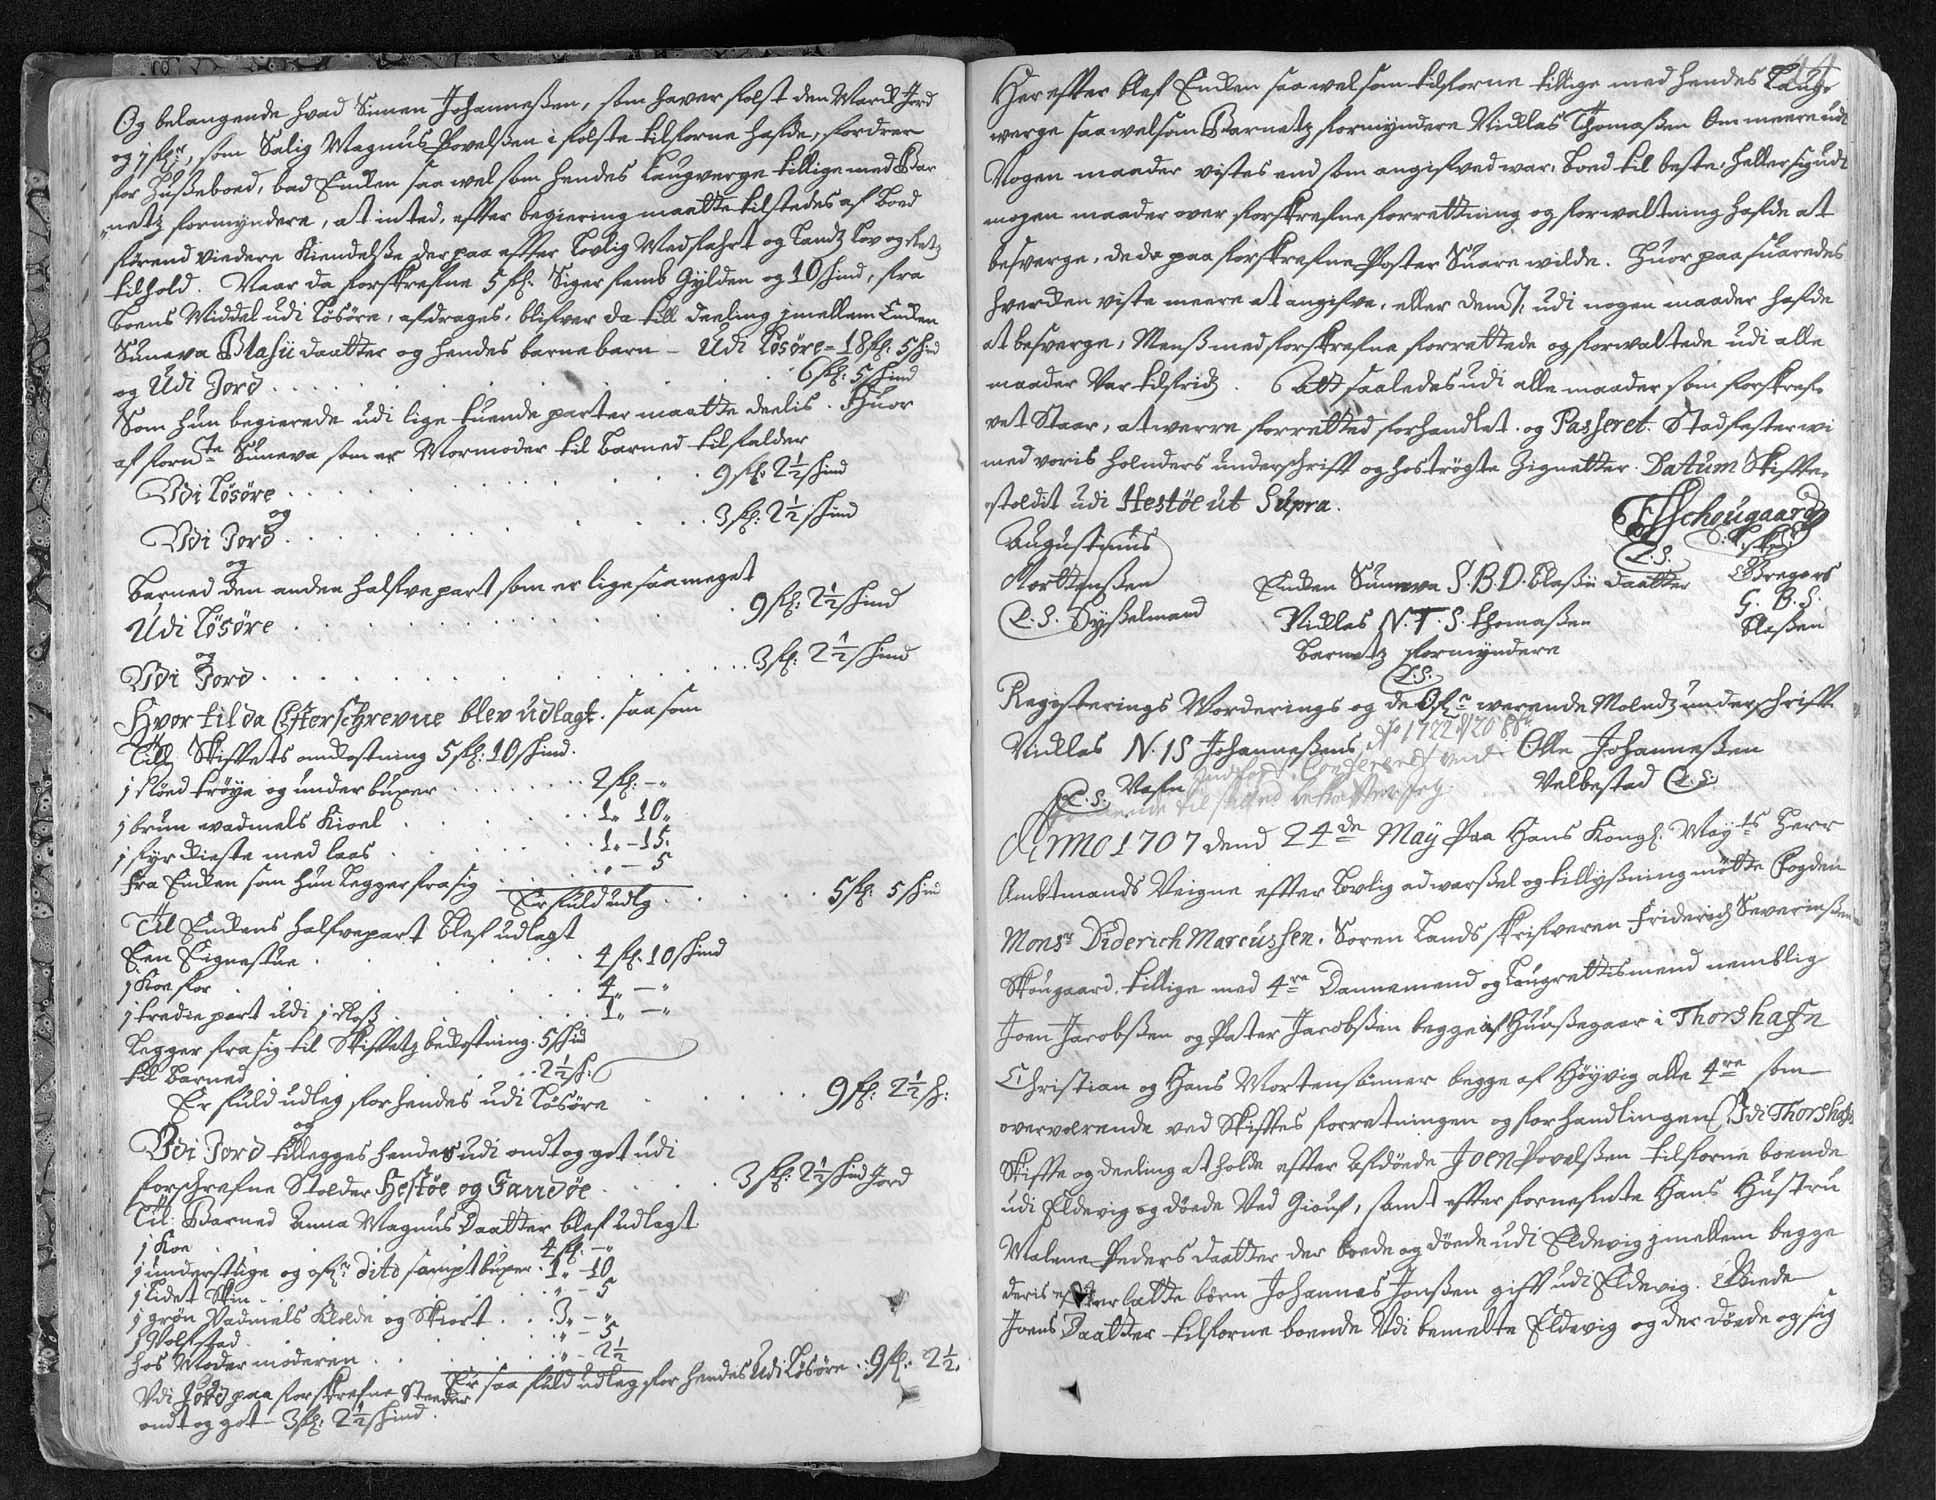 Og belangende hvad Simen Johanneßen, som haver fæst den Marck Jord
og j fhr, som Salig Magnus Povelßen i fæste tilforne hafde, fordrer
for Hußeboed, bad Encken saa wel som hendes Laugverge tillige med Bar
netz formyndere, at inted, effter begiering maatte tilstedes af boed
førend viedere Kiendelße der paa effter Lovlig Medfahrt og Landz Lov og Retz
tilhold. Naar da forskrefne 5 fl: Siger femb Gylden og 10 skind, fra
boens Middel udi Løsøre, afdrages, blifver da till deeling jmellem Encken
Suneva Blasii daatter og hendes barnebarn - Udi Løsøre - 18 fl: 5 skind
og Udi Jord . . . 6 fl: 5 skind
Som hun begierede udi lige tuende parter maatte deelis. Huor
af fornte Suneva som er Mormoder til Barned tilfalder
Udi Løsøre . . . 9 fl: 2½ skind
og
Udi Jord . . . 3 fl: 2½ skind
og
Barned den anden halfvepart som er lige saa meget
Udi Løsøre . . . 9 fl: 2½ skind
og
Udi Jord . . . 3 fl: 2½ skind
Hvor til da Efterschrevne blev udlagt. saa som
Till Skiftets omkostning 5 fl: 10 skind.
j Røed trøye og under buxer . . . 2 fl: - "
j brun wadmels Kioel . . . 1 " 10 "
j fyr Kieste med laas . . . 1 " - 15.
fra Encken som hun legger fra sig . . . " - 5
Er fuld udlg . . . 5 fl: 5 skind
Til Enckens halfvepart blef udlagt
Een Eignestue . . . 4 fl: 10 skind
j Koe for . . . 4 " - "
j tredie part udi j Roß . . . 1 " - "
Legger fra sig til Skiftetz bekostning. 5 skind
til Barned . . . 2½ sk:
Er fuld udleg for hendes udi Løsøre . . . 9 fl: 2½ sk:
og
Udi Jord tillegges hendes udi ondt og got udi
forschrefne Stolder Hestøe og Sandøe . . . 3 fl: 2½ skind Jord
Til Barned Anna Magnus Daatter blef udlagt
j Koe . . . 4 fl: - "
j understuge og ofr dito sampt buxer. 1 " - 10
j Lidet Skin . . . " - 5
j grøn Vadmels Klæde og Skiort . . . 3 " - "
j Volstad . . . " - 5
hos Moder moderen . . . " - 2½
Er saa fuld udleg for hendis Udi Løsøre . : 9 fl: 2½.
og
Udi Jord paa forskrefne Steeder
ondt og got - 3 fl: 2½ skind.
14
Her effter blef Encken saa wel som tilforne tillige med hendes Laug
werge saa wel som Barnetz formyndere Nicklas Thomaßen Om meere udi
Nogen maader vistes end som angifved war, boed til beste, heller sig udi
nogen maader over forskrefne forrettning og forwaltning hafde at
besverge, de da paa forskrefne Poster Suare wilde. Huor paa suaredes
hvercken viste meere at angifve, eller dend /: udi nogen maader hafde
at besverge, Menß med forskrefne forrettede og forwaltede udi alle
maader Var tilfridz. alt saaledes udi alle maader som forskref
vet Staar, at werre forretted forhandlet. og Passeret. Stadfester wi
med voris Hænders underschrift og hostrøgte Zignetter. Datum Skifte
stædit udi Hestøe ut Supra.
FSSchougaard
L.S.
Augustinus
Morttenßen
L.S. Syßelmand
Encken Suneva S.B.D. Blaßii daatter
Nicklas N.T.S. Thomaßen
Barnetz formyndere
L.S.
Gregors
G. B. S.
Blaßen
Registerings Worderings og de Ofr werende Mændz underschrifft
Nicklas N.IS Johanneßens Ao 1722
Olle Johanneßen
L.S. Nasn
Velbestad L.S.
Anno 1707 dend 24de May Paa Hans Kongl. Mayts Herr
Ambtmands Veigne effter Lovlig adwarßel og tillyßning møtte Fogden
Monsr Diderich Marcussen. Soren Lands skrifveren Friderich Severinßen
Skougaard. tillige med 4re Dannemend og Laugrettismend nemblig
Joen Jacobßen og Peter Jacobßen begge af Hunßegaar i Thorshafn
Christian og Hans Mortensønner begge af Høyvig alle 4re som
overværende ved Skiftes forretningen og forhandlingen Udi Thorshafn
Skiffte og deeling at holde effter Afdøede Joen Povelßen tilforne boende
udi Eldevig og døede Ved Giouf, samt effter fornefnte Hans Hustru
Malene Peders daatter der boede og døede udi Eldevig jmellem begge
deris effterlatte børn Johannes Jonßen gift udi Eldevig.
Joens Daatter tilforne boende Udi bemelte Eldevig og der døede og sig